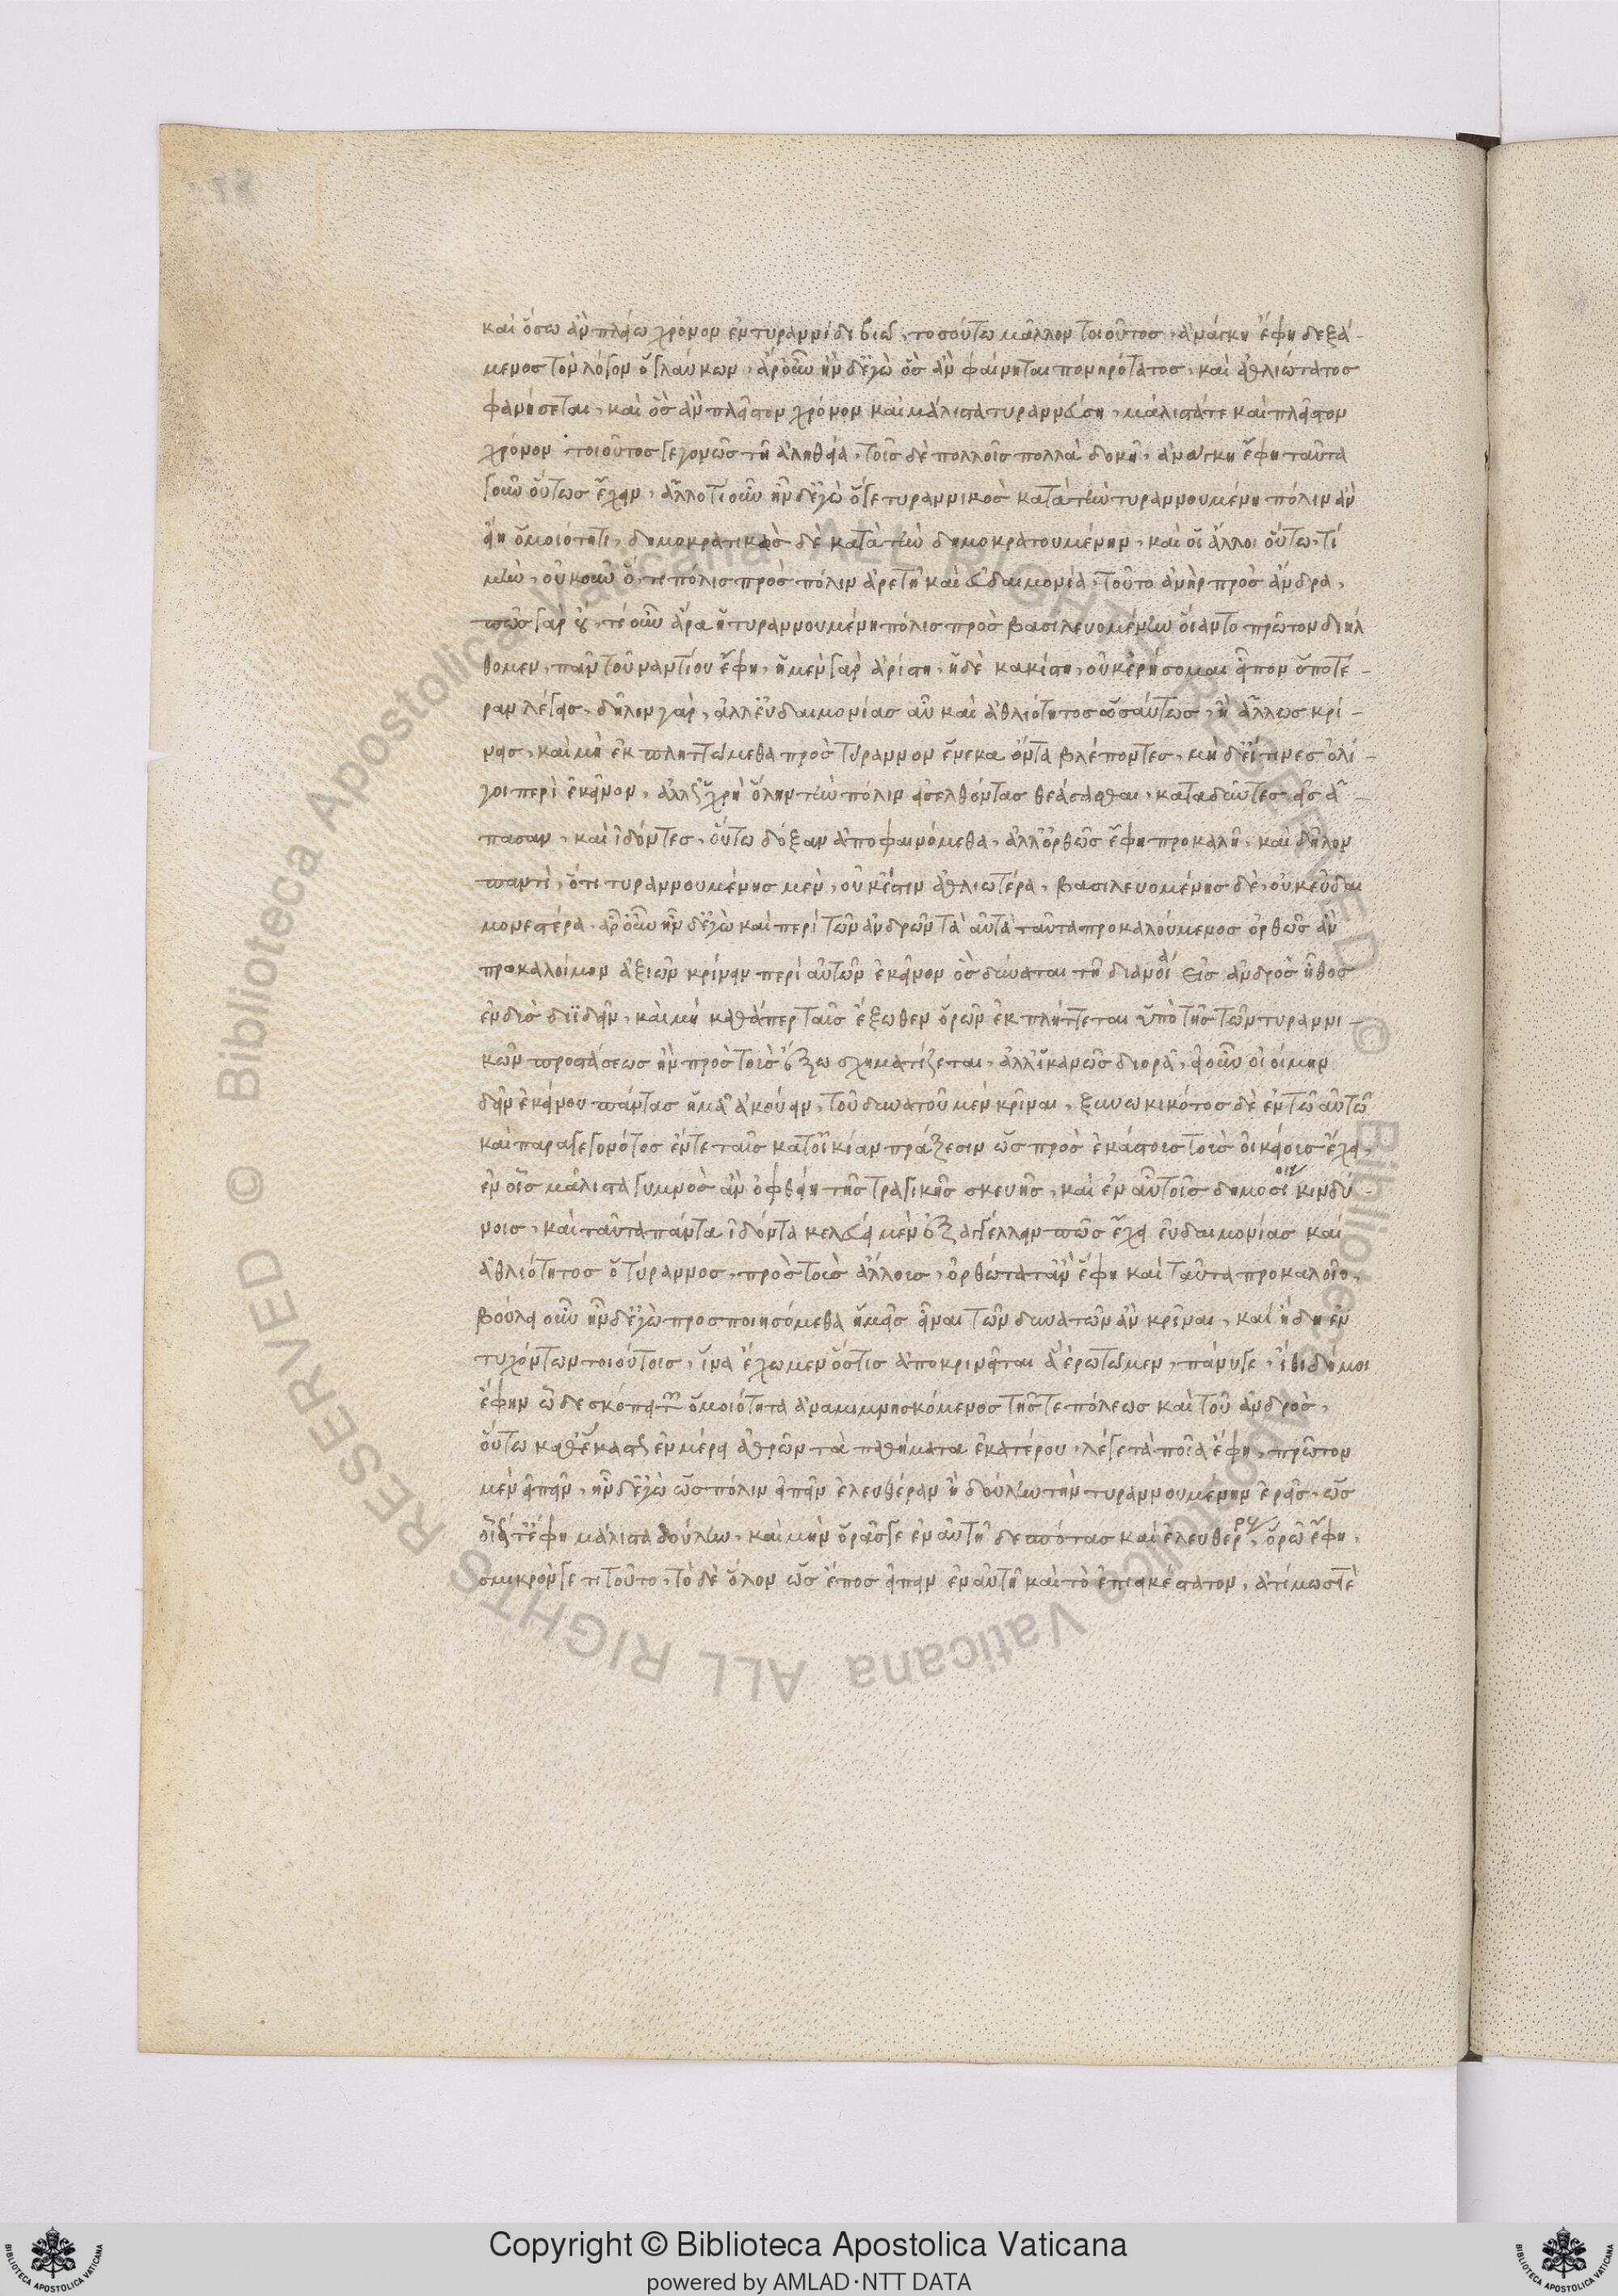 καὶ ὅσω ἂν πλείω χρόνον ἐν τυραννίδι βιῶ, τοσούτω μᾶλλον τοιοῦτος, ἀνάγκη ἔφη δεξά-
μενος τὸν λόγον ὁ γλαύκων, ἆρ' οὖν ἦν δ' ἐγὼ ὃς ἂν φαίνηται πονηρότατος, καὶ ἀθλιώτατος
φανήσεται, καὶ ὃς ἂν πλεῖστον χρόνον καὶ μάλιστα τυραννεύση, μάλιστά τε καὶ πλεῖστον
χρόνον τοιοῦτος γεγονὼς τῆ ἀληθεία, τοῖς δὲ πολλοῖς πολλὰ δοκῆ, ἀνάγκη ἔφη ταῦτα
γοῦν οὕτως ἔχειν, ἄλλο τι οὖν ἦν δ' ἐγὼ ὅ γε τυραννικὸς κατὰ τὴν τυραννουμένη πόλιν ἂν
εἴη ὁμοιότητι, δημοκρατικὸς δὲ κατὰ τὴν δημοκρατουμένην, καὶ οἱ ἄλλοι οὕτω, τί
μὴν, οὐκοῦν ὅ, τι πόλις πρὸς πόλιν ἀρετῆ καὶ εὐδαιμονία, τοῦτο ἀνὴρ πρὸς ἄνδρα,
πῶς γὰρ οὔ, τί οὖν ἄρα ἡ τυραννουμένη πόλις πρὸς βασιλευομένην οἵαν τὸ πρῶτον διήλ
θομεν, πᾶν τοὐναντίον ἔφη, ἡ μὲν γὰρ ἀρίστη, ἡ δὲ κακίστη, οὐκ ἐρήσομαι εἶπον ὁποτέ-
ραν λέγεις, δῆλον γάρ, ἀλλ' εὐδαιμονίας αὖ καὶ ἀθλιότητος ὡσαύτως, ἢ ἄλλως κρί-
νεις, καὶ μὴ ἐκπληττώμεθα πρὸς τύραννον ἕνεκα ὄντα βλέποντες, μὴ δ' εἴ τινες ὀλί-
γοι περὶ ἐκεῖνον, ἀλλ' ὡς χρὴ ὅλην τὴν πόλιν εἰσελθόντας θεάσασθαι, καταδύντες εἰς ἅ-
πασαν, καὶ ἰδόντες, οὕτω δόξαν ἀποφαινόμεθα, ἀλλ' ὀρθῶς ἔφη προκαλῆ, καὶ δῆλον
παντὶ, ὅτι τυραννουμένης μὲν, οὐκ ἔστιν ἀθλιωτέρα, βασιλευομένης δὲ, οὐκ εὐδαι
μονεστέρα, ἆρ' οὖν ἦν δ' ἐγὼ καὶ περὶ τῶν ἀνδρῶν τὰ αὐτὰ ταῦτα προκαλούμενος ὀρθῶς ἂν
προκαλοίμην ἀξιῶν κρίνειν περὶ αὐτῶν ἐκεῖνον ὃς δύναται τῆ διανοία εἰς ἀνδρὸς ἦθος
ἐνδὺς διϊδεῖν, καὶ μὴ καθάπερ παῖς ἔξωθεν ὁρῶν ἐκπλήττεται ὑπὸ τῆς τῶν τυραννι-
κῶν προστάσεως ἣν πρὸς τοὺς ἔξω σχηματίζεται, ἀλλ' ἱκανῶς διορᾶ, εἰ οὖν οἰοίμην
δεῖν ἐκείνου πάντας ἡμᾶς ἀκούειν, τοῦ δυνατοῦ μὲν κρῖναι, ξυνωκικότος δὲ ἐν τῶ αὐτῶ
καὶ παραγεγονότος ἔν τε ταῖς κατ' οἰκίαν πράξεσιν ὡς πρὸς ἑκάστους τοὺς οἰκείους ἔχει,
ἐν οἷς μάλιστα γυμνὸς ἂν ὀφθείη τῆς τραγικῆς σκευῆς, καὶ ἐν αὖ τοῖς δημοσίοις κινδύ-
νοις, καὶ ταῦτα πάντα ἰδόντα κελεύει μὲν ἐξαγγέλλειν πῶς ἔχει εὐδαιμονίας καὶ
ἀθλιότητος ὁ τύραννος, πρὸς τοὺς ἄλλους, ὀρθότατ' ἂν ἔφη καὶ ταῦτα προκαλοῖο,
βούλει οὖν ἦν δ' ἐγὼ προσποιησόμεθα ἡμεῖς εἶναι τῶν δυνατῶν ἂν κρῖναι, καὶ ἤδη ἐν
τυχόντων τοιούτοις, ἵνα ἔχωμεν ὅστις ἀποκρινεῖται ἃ ἐρωτῶμεν, πάνυ γε, ἴθι δή μοι
ἔφην ὧδε σκόπει τὴν ὁμοιότητα ἀναμιμνησκόμενος τῆς τε πόλεως καὶ τοῦ ἀνδρὸς,
οὕτω καθ' ἕκαστον ἐν μέρει ἀθρῶν τὰ παθήματα ἑκατέρου, λέγε τὰ ποῖα ἔφη, πρῶτον
μὲν εἰπεῖν, ἦν δ' ἐγὼ ὡς πόλιν εἰπεῖν ἐλευθέραν ἢ δούλην τὴν τυραννουμένην ἐρεῖς, ὡς
οἷόν τ' ἔφη μάλιστα δούλην, καὶ μὴν ὁρᾶς γε ἐν αὐτῆ δεσπότας καὶ ἐλευθέρους, ὁρῶ ἔφη,
σμικρόν γε τι τοῦτο, τὸ δὲ ὅλον ὡς ἔπος εἰπεῖν ἐν αὐτῆ καὶ τὸ ἐπιεικέστατον, ἀτίμως τὲ
Copyright © Biblioteca Apostolica Vaticana
powered by AMLAD·NTT DATA